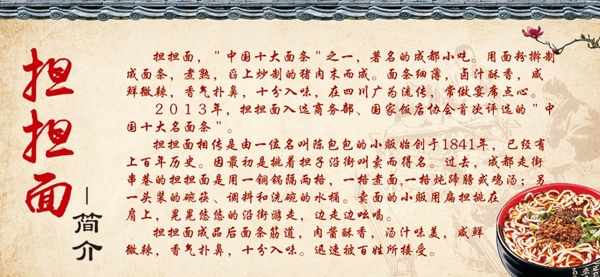 担担面
—简介
担担面，"中国十大面条"之一，著名的成都小吃。用面粉擀制
成面条，煮熟，舀上炒制的猪肉末而成。面条细薄，卤汁酥香，咸
鲜微辣，香气扑鼻，十分入味，在四川广为流传，常做宴席点心。
2013年，担担面入选商务部、国家饭店协会首次评选的"中
国十大名面条"。
担担面相传是由一位名叫陈包包的小贩始创于1841年，已经有
上百年历史。因最初是挑着担子沿街叫卖而得名。过去，成都走街
串巷的担担面是用一铜锅隔两格，一格煮面，一格炖蹄膀或鸡汤；另
一头装的碗筷、调料和洗碗的水桶。卖面的小贩用扁担挑在
肩上，晃晃悠悠的沿街游走，边走边吆喝。
担担面成品后面条筋道，肉酱酥香，汤汁味美，咸鲜
微辣，香气扑鼻，十分入味。迅速被百姓所接受。